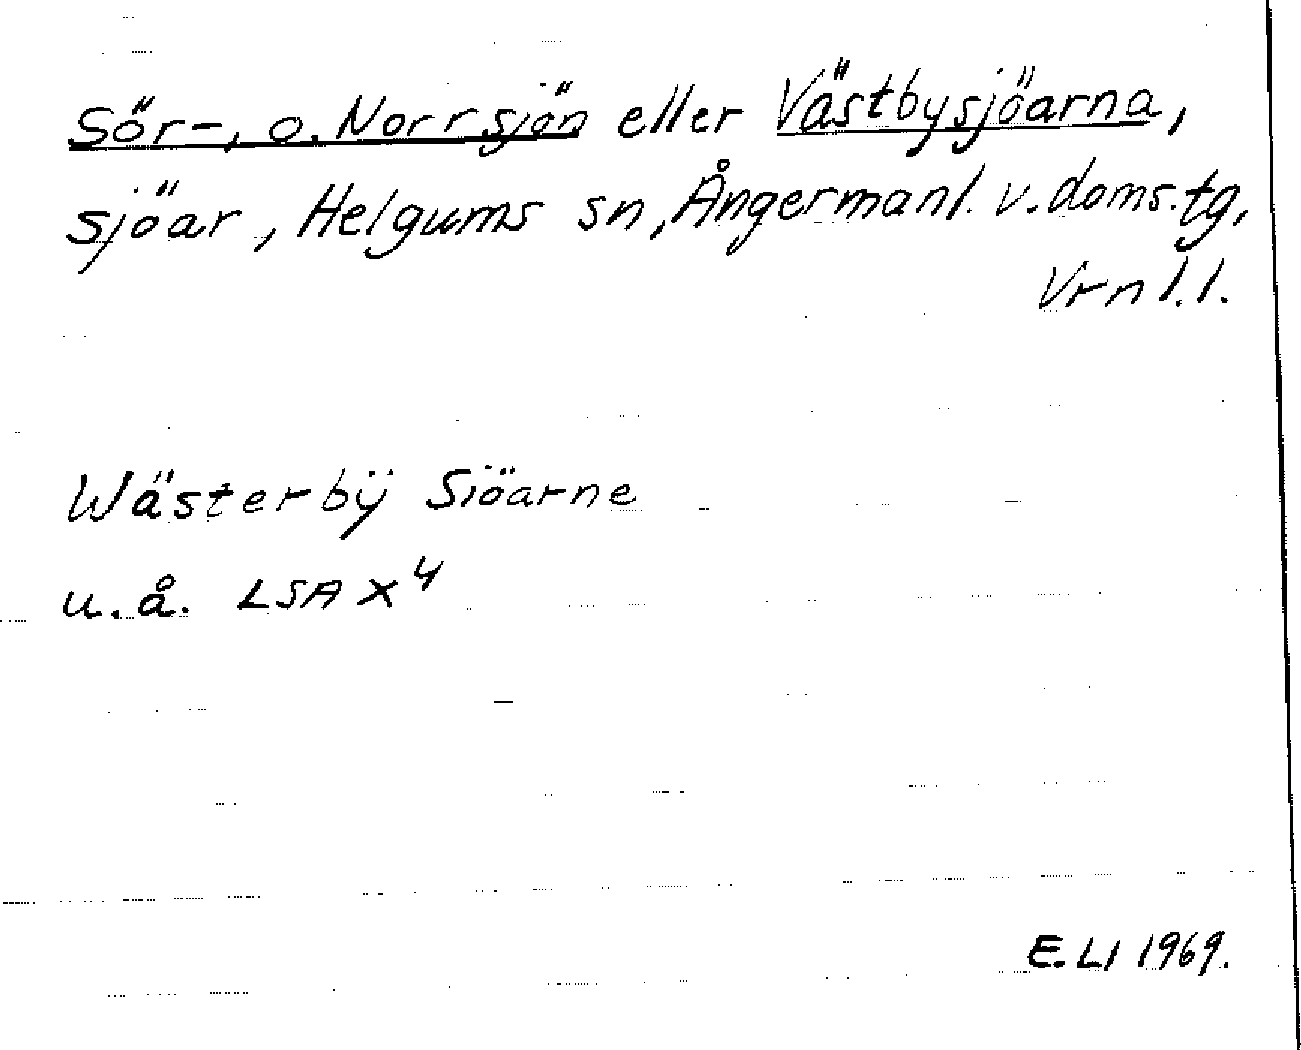 Sör-, o. Norrsjön eller Västbysjöarna,
sjöar, Helgums sn, Ångermanl. v. doms. tg,
Vrnl.l.
Wästerbÿ Siöarne
u.å. LSA X4
E. LI 1969.